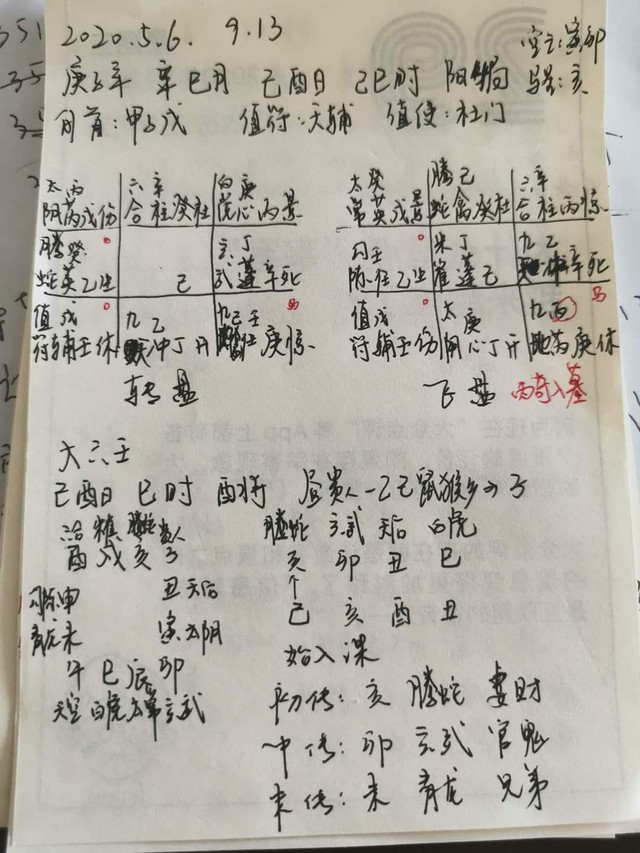 2020.5.6. 9.13
空亡:寅卯
庚子年 辛巳月 己酉日 己巳时 阳4局 马星:亥
旬首:甲子戊 值符:天辅 值使:杜门
太 丙 六 辛 白 庚
阴芮戊伤 合柱癸杜 虎心丙景
腾 癸 玄 丁
蛇英乙生 己 武蓬辛死
值 戊 九 乙 九 壬 马
符辅壬休 天冲丁开 地任庚惊
转盘
太 癸 腾 己 六 辛
常英戊景 蛇禽癸杜 合柱丙惊
勾 壬 朱 丁 九 乙
陈任乙生 雀蓬己 天冲辛死
值 戊 太 庚 九 丙 马
符辅壬伤 阴心丁开 地芮庚休
飞盘 丙奇入墓
大六壬
己酉日 巳时 酉将 昼贵人-乙己鼠猴乡→子
六合 朱雀 腾蛇 贵人
酉 戌 亥 子
勾陈申 丑天后
青龙未 寅太阴
午 巳 辰 卯
天空 白虎 太常 玄武
腾蛇 玄武 天后 白虎
亥 卯 丑 巳
↑
己 亥 酉 丑
始入课
初传: 亥 腾蛇 妻财
中传: 卯 玄武 官鬼
末传: 未 青龙 兄弟